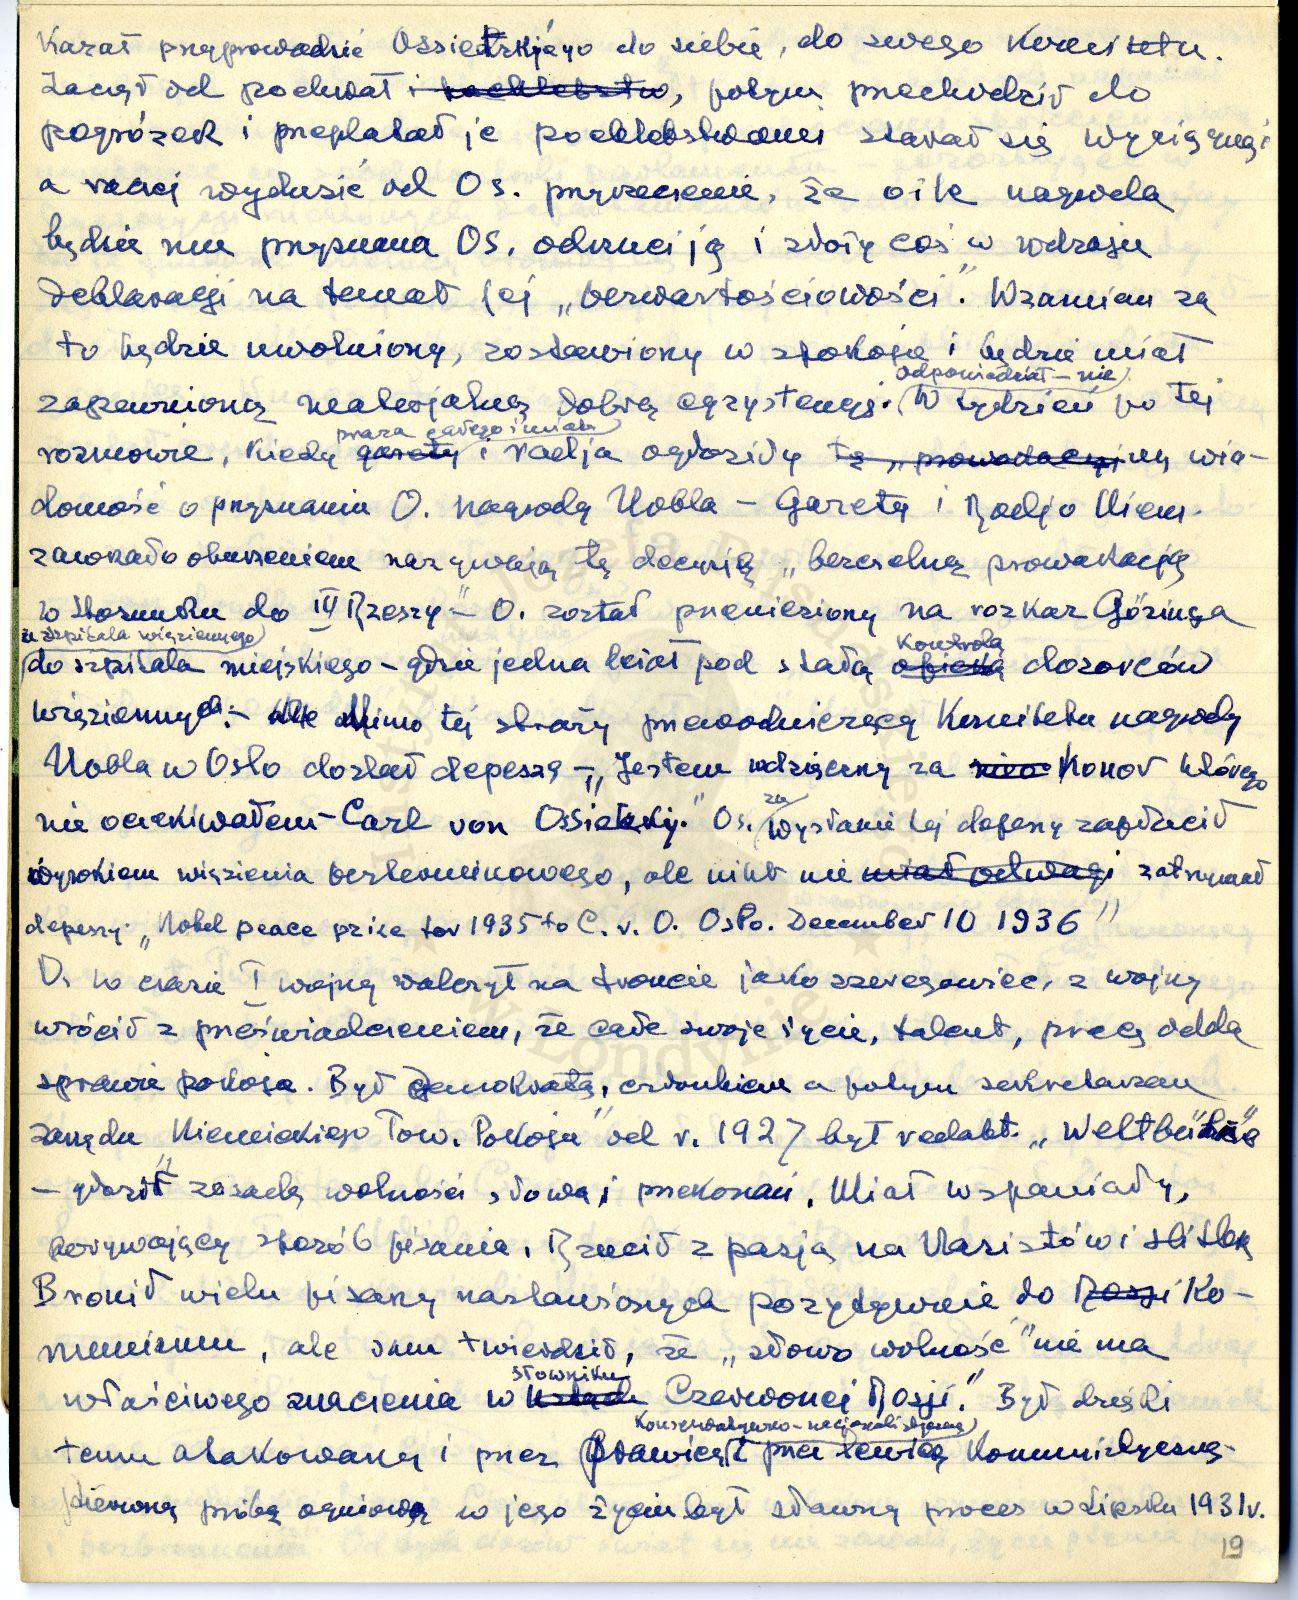 Kazał przyprowadzić Ossietzkiego do siebie, do swego
Zaczął od pochwał i pochlebstw, potym przechodził do
pogróżek i przeplatał je pochlebstwami starał się wyciągnąć
a raczej wydusić od Os. przyrzeczenie, że o ile nagroda
będzie mu przyznana Os. odrzuci ją i złoży coś w rodzaju
deklaracji na temat jej „bezwartościowości". Wzamian za
to będzie uwolniony, zostawiony w spokoju i będzie miał
odpowiedział – nie
zapewnioną materjalną dobrą egzystencję. W tydzień po tej
prasa całego świata
rozmowie, kiedy gazety i radja ogłosiły tę „prowokacyjną wia-
domość o przyznaniu O. nagrody Nobla – Gazety i Radjo Niem.
zawrzało oburzeniem nazywają tę decyzję „bezczelną prowokacją
w stosunku do III Rzeszy" – O. został przeniesiony na rozkaz Göringa
ze szpitala więziennego
do szpitala miejskiego – gdzie jedna leżał pod stałą opieką dozorców
Kontrolą
więziennych. – Ale Mimo tej straży przewodniczący Komitetu nagrody
Nobla w Oslo dostał depeszę – „Jestem wdzięczny za honor którego
nie oczekiwałem – Carl von Ossietzky." Os. za wysłanie tej depeszy zapłacił
wyrokiem więzienia bezterminowego, ale nikt nie miał odwagi zatrzymać
depeszy. „Nobel peace prize for 1935 to C. v. O. Oslo. December 10 1936"
O. w czasie I wojny walczył na froncie jako szeregowiec, z wojny
wrócił z przeświadczeniem, że całe swoje życie, talent, pracę odda
sprawie pokoja. Był demokratą, członkiem a potym sekretarzem
zarządu Niemieckiego Tow. Pokoju" od r. 1927 był redakt. „Weltbühne"
– głosił zasadę wolności słowa i przekonań. Miał wspaniały,
porywający sposób pisania, Rzucił z pasją na Nazistów i Hitlera
Bronił wielu pisarzy nastawionych pozytywnie do Rosji Ko-
munizmu, ale sam twierdził, że „słowo wolność" nie ma
słowniku
właściwego znaczenia w Czerwonej Rosji". Był dzięki
Konserwatywno – nacjonalistyczną
temu atakowany i przez Prawicę i przez lewicę Komunistyczną.
Pierwszą próbą ogniową w jego życiu był sławny proces w Lipsku 1931 r.
19